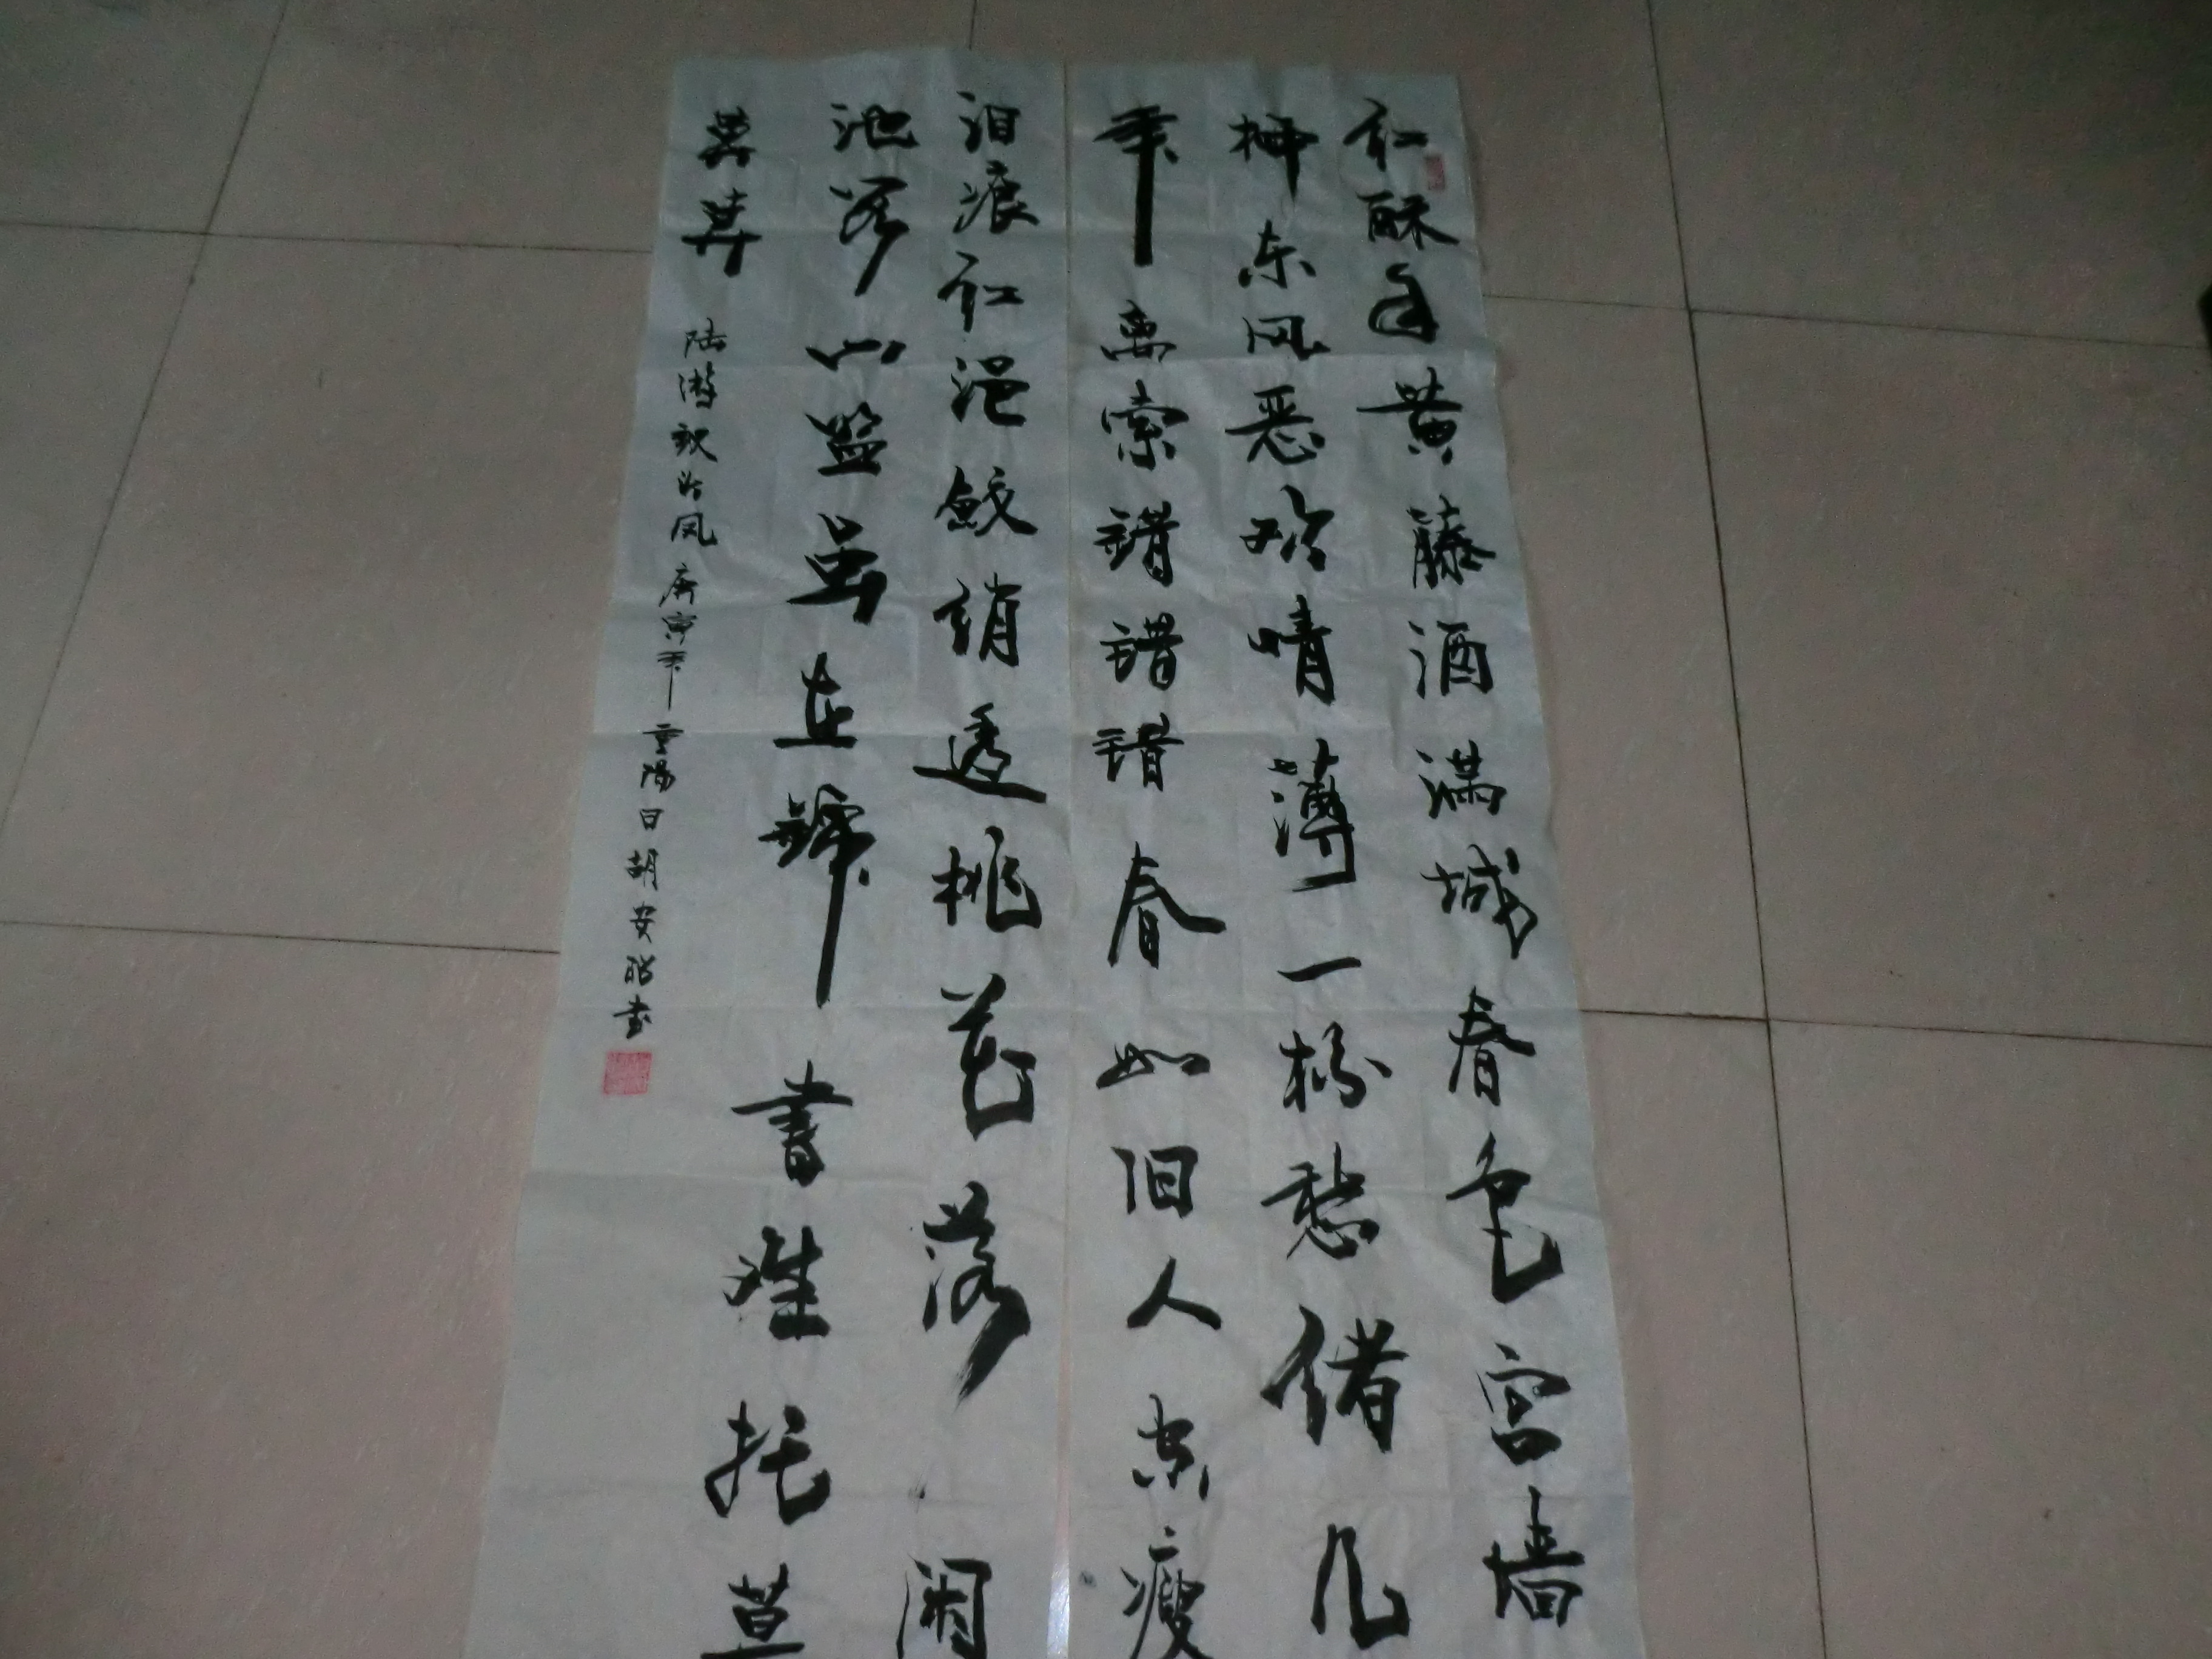 红酥手黄藤酒满城春色宫墙
柳东风恶欢情薄一杯愁绪几
年离索错错错春如旧人空瘦
泪痕红浥鲛绡透桃花落闲
池阁山盟虽在锦书难托莫
莫莫
陆游钗头凤 庚寅年重阳日胡安 书